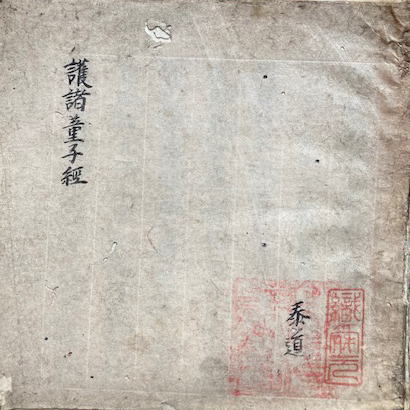 護諸童子經
泰道